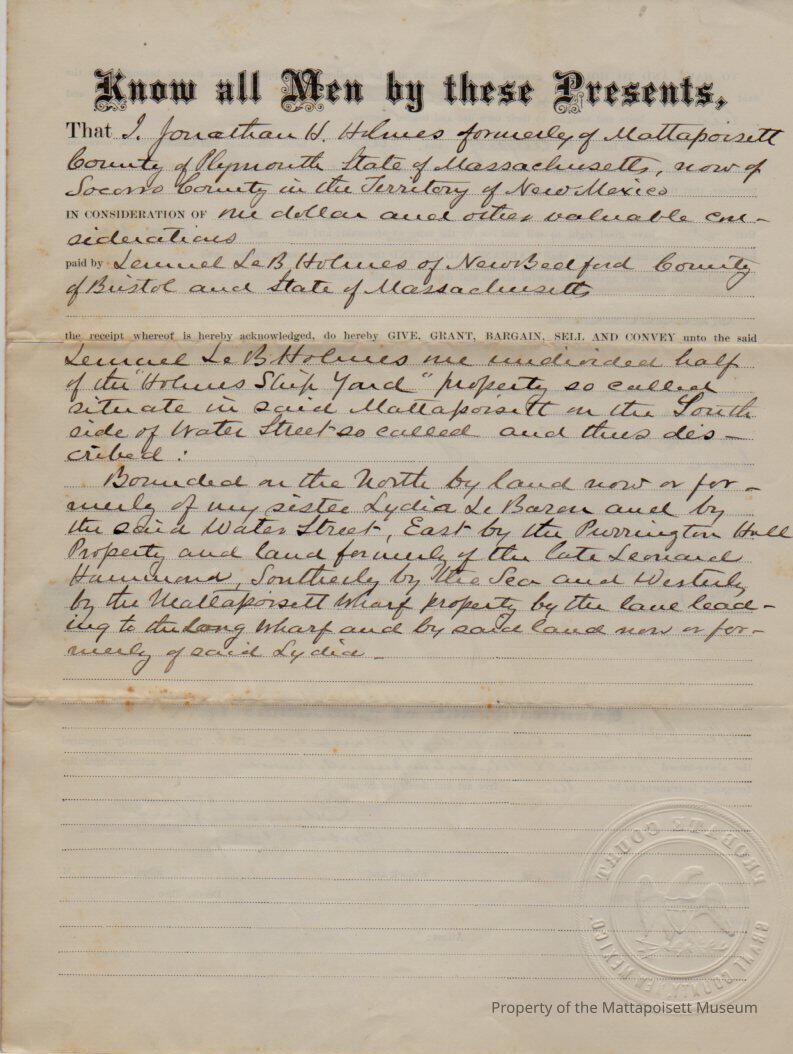 Know all Men by these Presents,
That I, Jonathan H. Holmes formerly of Mattapoisett
County of Plymouth State of Massachusetts, now of
Socorro County in the Territory of New Mexico
IN CONSIDERATION OF one dollar and other valuable con-
siderations
paid by Lemuel LeB Holmes of New Bedford County
of Bristol and State of Massachusetts
the receipt whereof is hereby acknowledged, do hereby GIVE, GRANT, BARGAIN, SELL AND CONVEY unto the said
Lemuel Le B Holmes one undivided half
of the "Holmes Ship Yard" property so called
situate in said Mattapoisett on the South
side of Water Street so called and thus des-
cribed:
Bounded on the North by land now or for-
merly of my sister Lydia Le Baron and by
the said Water Street, East by the Purrington Hall
Property and land formerly of the late Leonard
Hammond, Southerly by the Sea and Westerly
by the Mattapoisett Wharf property by the lane lead-
ing to the Long Wharf and by said land now or for-
merly of said Lydia
PROBATE COURT
COUNTY NEW MEXICO
Property of the Mattapoisett Museum